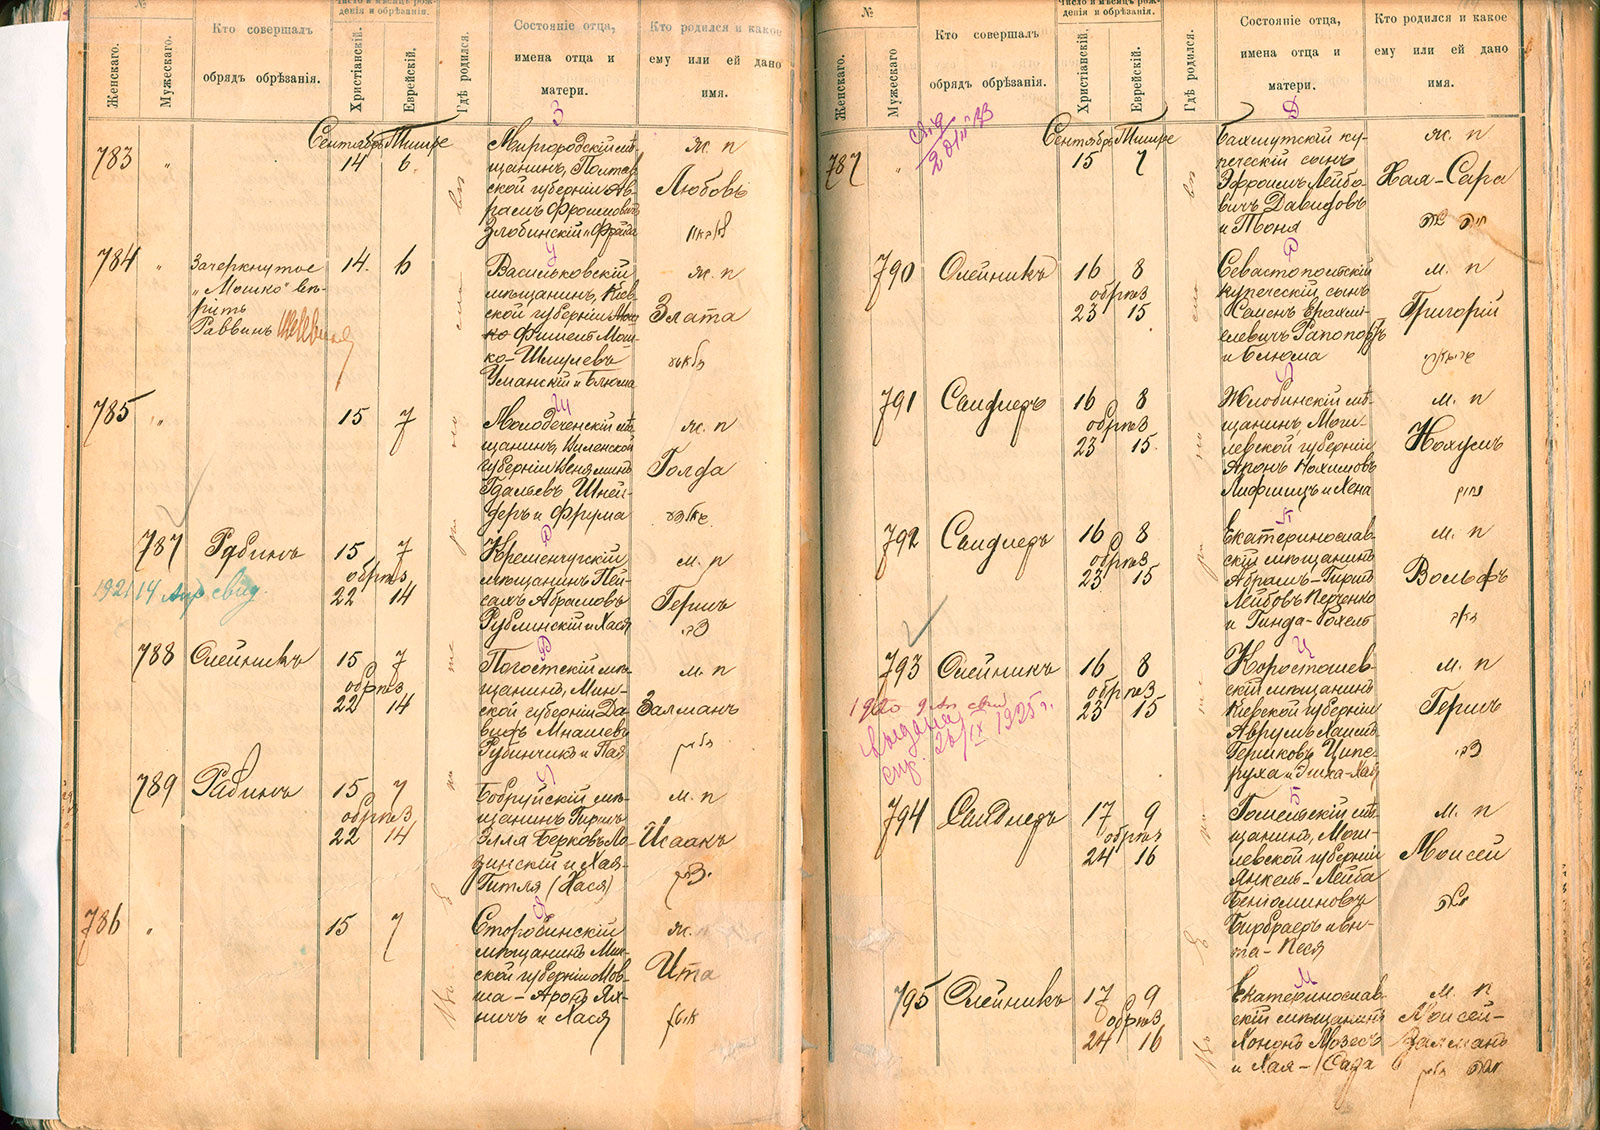 №
Женскаго.
Мужескаго.
Кто совершалъ
обрядъ обрѣзанія.
Число и мѣсяцъ рож-
денія и обрѣзанія.
Христіанскій.
Еврейскій.
Гдѣ родился.
Состояніе отца,
имена отца и
матери.
Кто родился и какое
ему или ей дано
имя.
783
"
Сентябрь Тишре
14 6
З
Миргородскій мѣ-
щанинъ, Полтав
ской губерніи Ав-
рамъ Фроимовичъ
Злобинскій и Фрейда
ж. п
Любовь
784
"
Зачеркнутое
"Мошко" вѣ-
рить
Раввинъ
14. 6
У
Васильковскій
мѣщанинъ, Кіев
ской губерніи Мош
ко Фишель Мош-
ко-Шмулевъ
Уманскій и Блюма
ж. п
Злата
זלאטא
785
"
15 7
Ш
Молодеченскій мѣ
щанинъ, Виленской
губерніи Веніаминъ
Гдальевъ Шней-
деръ и Фрума
ж. п
Голда
גאלדע
787
Рабинъ
15 7
обрѣз
22 14
1921 14 Апр свид.
Р
Кременчугскій
мѣщанинъ Пей-
сахъ Абрамовъ
Рублинскій и Хася
м. п
Гершъ
צבי
788
Олейникъ
15 7
обрѣз
22 14
Р
Погостскій мѣ-
щанинъ, Мин-
ской губерніи Да-
видъ Мнашевъ
Рубинчикъ и Пая
м. п
Залманъ
זלמן
789
Рабинъ
15 7
обрѣз
22 14
Бобруйскій мѣ-
щанинъ Гиршъ
Элля Берковъ Мо-
зинскій и Хая-
Гитля (Хася)
м. п
Исаакъ
יצחק
786
"
15 7
Я
Старобинскій
мѣщанинъ Мин-
ской губерніи Мов-
ша-Аронъ Ях-
ничъ и Хася
ж. п
Ита
איטע
№
Женскаго.
Мужескаго
Кто совершалъ
обрядъ обрѣзанія.
Число и мѣсяцъ рож-
денія и обрѣзанія.
Христіанскій.
Еврейскій.
Гдѣ родился.
Состояніе отца,
имена отца и
матери.
Кто родился и какое
ему или ей дано
имя.
787
"
Сентябрь Тишре
15 7
Д
Бахмутскій ку-
печескій сынъ
Эфроимъ Лейбо-
вичъ Давидовъ
и Тоня
ж. п
Хая-Сара
חיה שרה
790
Олейникъ
16 8
обрѣз
23 15
Р
Севастопольскій
купеческій сынъ
Семенъ Ерахми-
елевичъ Рапопортъ
и Блюма
м. п
Григорій
791
Сандлеръ
16 8
обрѣз
23 15
Жлобинскій мѣ-
щанинъ Моги-
левской губерніи
Аронъ Нохимовъ
Лифшицъ и Хена
м. п
Нохумъ
נחום
792
Сандлеръ
16 8
обрѣз
23 15
П
Екатеринослав-
скій мѣщанинъ
Абрамъ-Гиршъ
Лейбовъ Перченко
и Гинда-Рохель
м. п
Вольфъ
וואלף
793
Олейникъ
16 8
обрѣз
23 15
выдана
спр. 26/IX 1925 г.
Ц
Коростышев-
скій мѣщанинъ
Кіевской губерніи
Аврумъ Хаимъ
Гершковъ Ципе-
руха и Эйха-Хая
м. п
Гершъ
צבי
794
Сандлеръ
17 9
обрѣз
24 16
Б
Гомельскій мѣ-
щанинъ, Моги-
левской губерніи
Янкель-Лейба
Беніаминовъ
Бирбраеръ и Ви-
та-Песя
м. п
Моисей
משה
795
Олейникъ
17 9
обрѣз
24 16
М
Екатеринослав-
скій мѣщанинъ
Хононъ Мозесъ
и Хая-Сара
м. п
Моисей-
Залманъ
משה זלמן